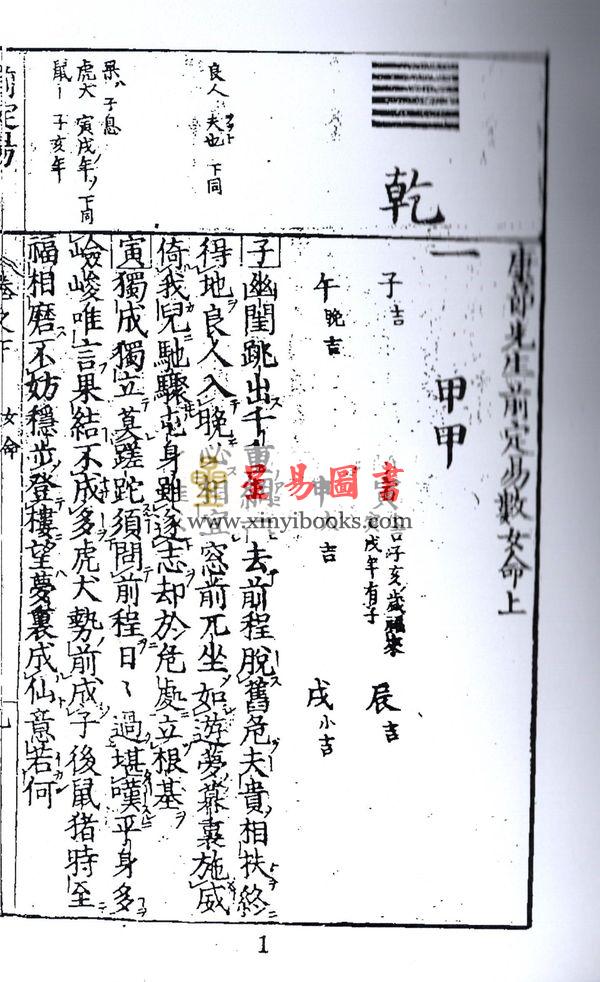 康節先生前定易數女命上
乾
一
甲甲
子吉
寅吉子亥歲福來
戌年有子
辰吉
午晚吉
申吉
戌小吉
良人 夫也 下同
果ハ 子息
虎犬 寅戌年ノ下同
鼠ー 子亥年
子幽閨跳出千重網去前程脫舊危夫貴相扶終
得地良人入晚必相宜窓前兀坐如遊夢幕裏施威
倚我兒馳驟屯身雖遂志却於危處立根基
寅獨成獨立莫蹉跎須問前程日々過堪嘆平身多
嶮峻唯言果結不成多虎犬勢前成子後鼠猪時至
福相磨不妨穩步登樓望夢裏成仙意若何
前定易
卷之下
女命
星易圖書
www.xinyibooks.com
1